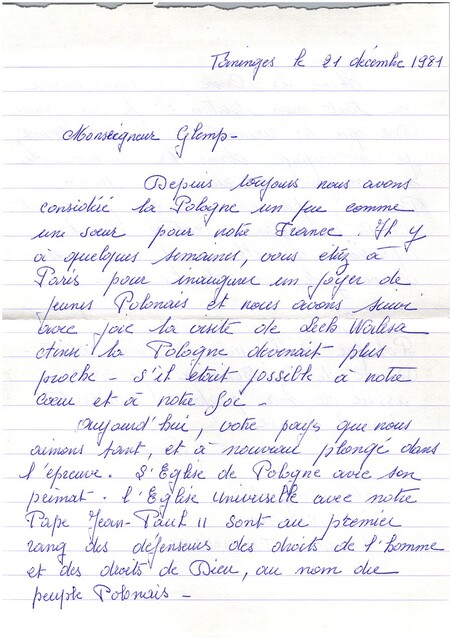 Taninges le 21 décembre 1981
Monseigneur Glemp -
Depuis toujours nous avons
considéré la Pologne un peu comme
une sœur pour notre France. Il y
à quelques semaines, vous étiez à
Paris pour inaugurer un foyer de
jeunes Polonais et nous avons suivi
avec joie la visite de Lech Walesa
Ainsi la Pologne devenait plus
proche - s'il était possible à notre
cœur et à notre foi -
Aujourd'hui, votre pays que nous
aimons tant, et à nouveau plongé dans
l'épreuve. L'Eglise de Pologne avec son
primat. l'Eglise Universelle avec notre
Pape Jean-Paul II sont au premier
rang des défenseurs des droits de l'homme
et des droits de Dieu, au nom du
peuple Polonais -